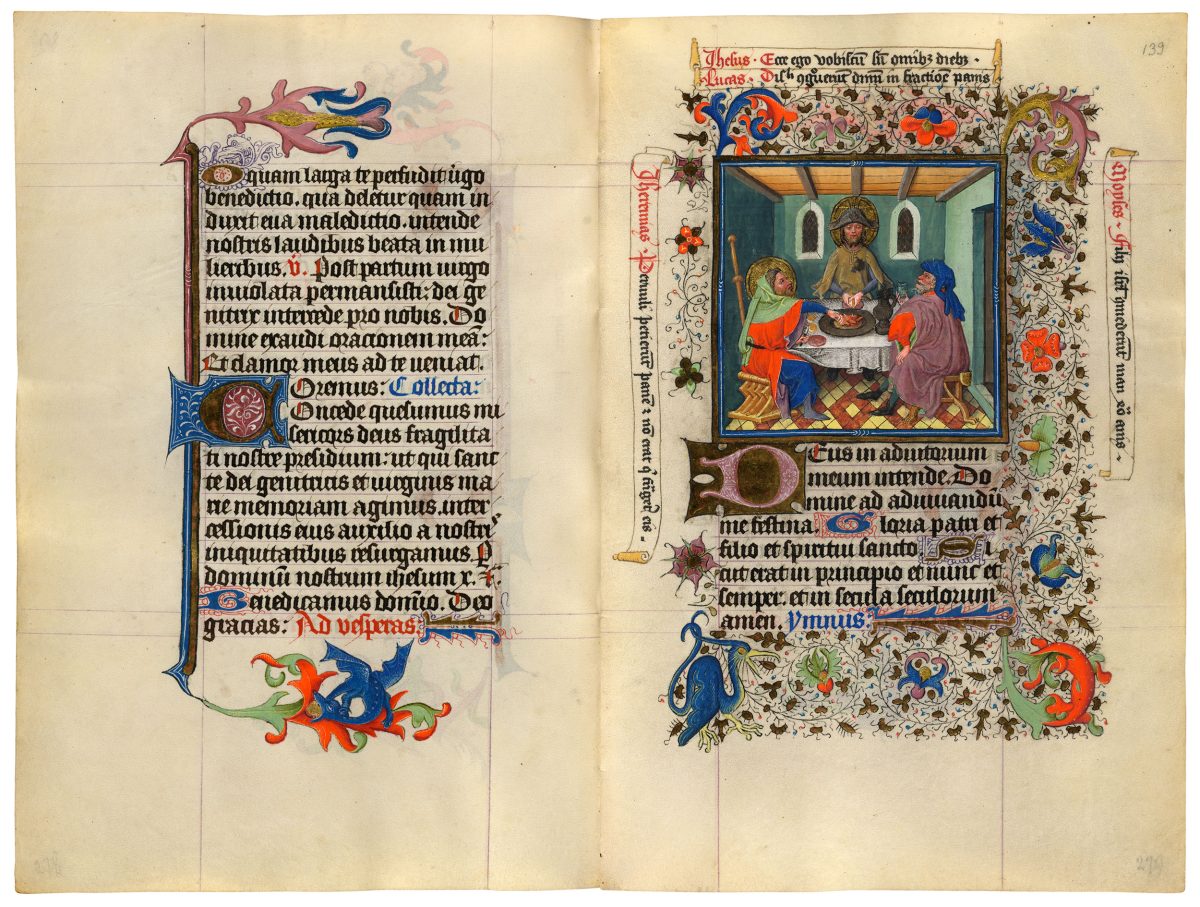 O quam larga te perfudit v̄go
benedictio. qua deletur quam in
duxit eua maledictio. intende
nostris laudibus beata in mu
lieribus. v̄. Post partum uirgo
inuiolata permansisti: dei ge
nitrix intercede pro nobis. Do
mine exaudi oracionem meā:
Et clamor meus ad te ueniat.
Oremus: Collecta:
Concede quesumus mi
sericors deus fragilita
ti nostre presidium: ut qui sanc
te dei genitricis et uirginis ma
rie memoriam agimus. inter
cessionis eius auxilio a nostris
iniquitatibus resurgamus. P
dominū nostrum ihesum x.
Benedicamus domino. Deo
gracias: Ad vesperas.
139
Jhesus · Ecce ego vobiscū sū omībꝫ diebꝫ ·
Lucas · dn̄m in fractiōe panis
Jheremias · Paruuli petierūt panē ⁊ nō erat q̇ frāgeret eis ·
Moyses · Filij isrl̄ comederūt man
Deus in adiutorium
meum intende. Do
mine ad adiuuandū
me festina. Gloria patri et
filio et spiritui sancto Si
cut erat in principio et nunc et
semper. et in secula seculorum
amen. ymnus.
274